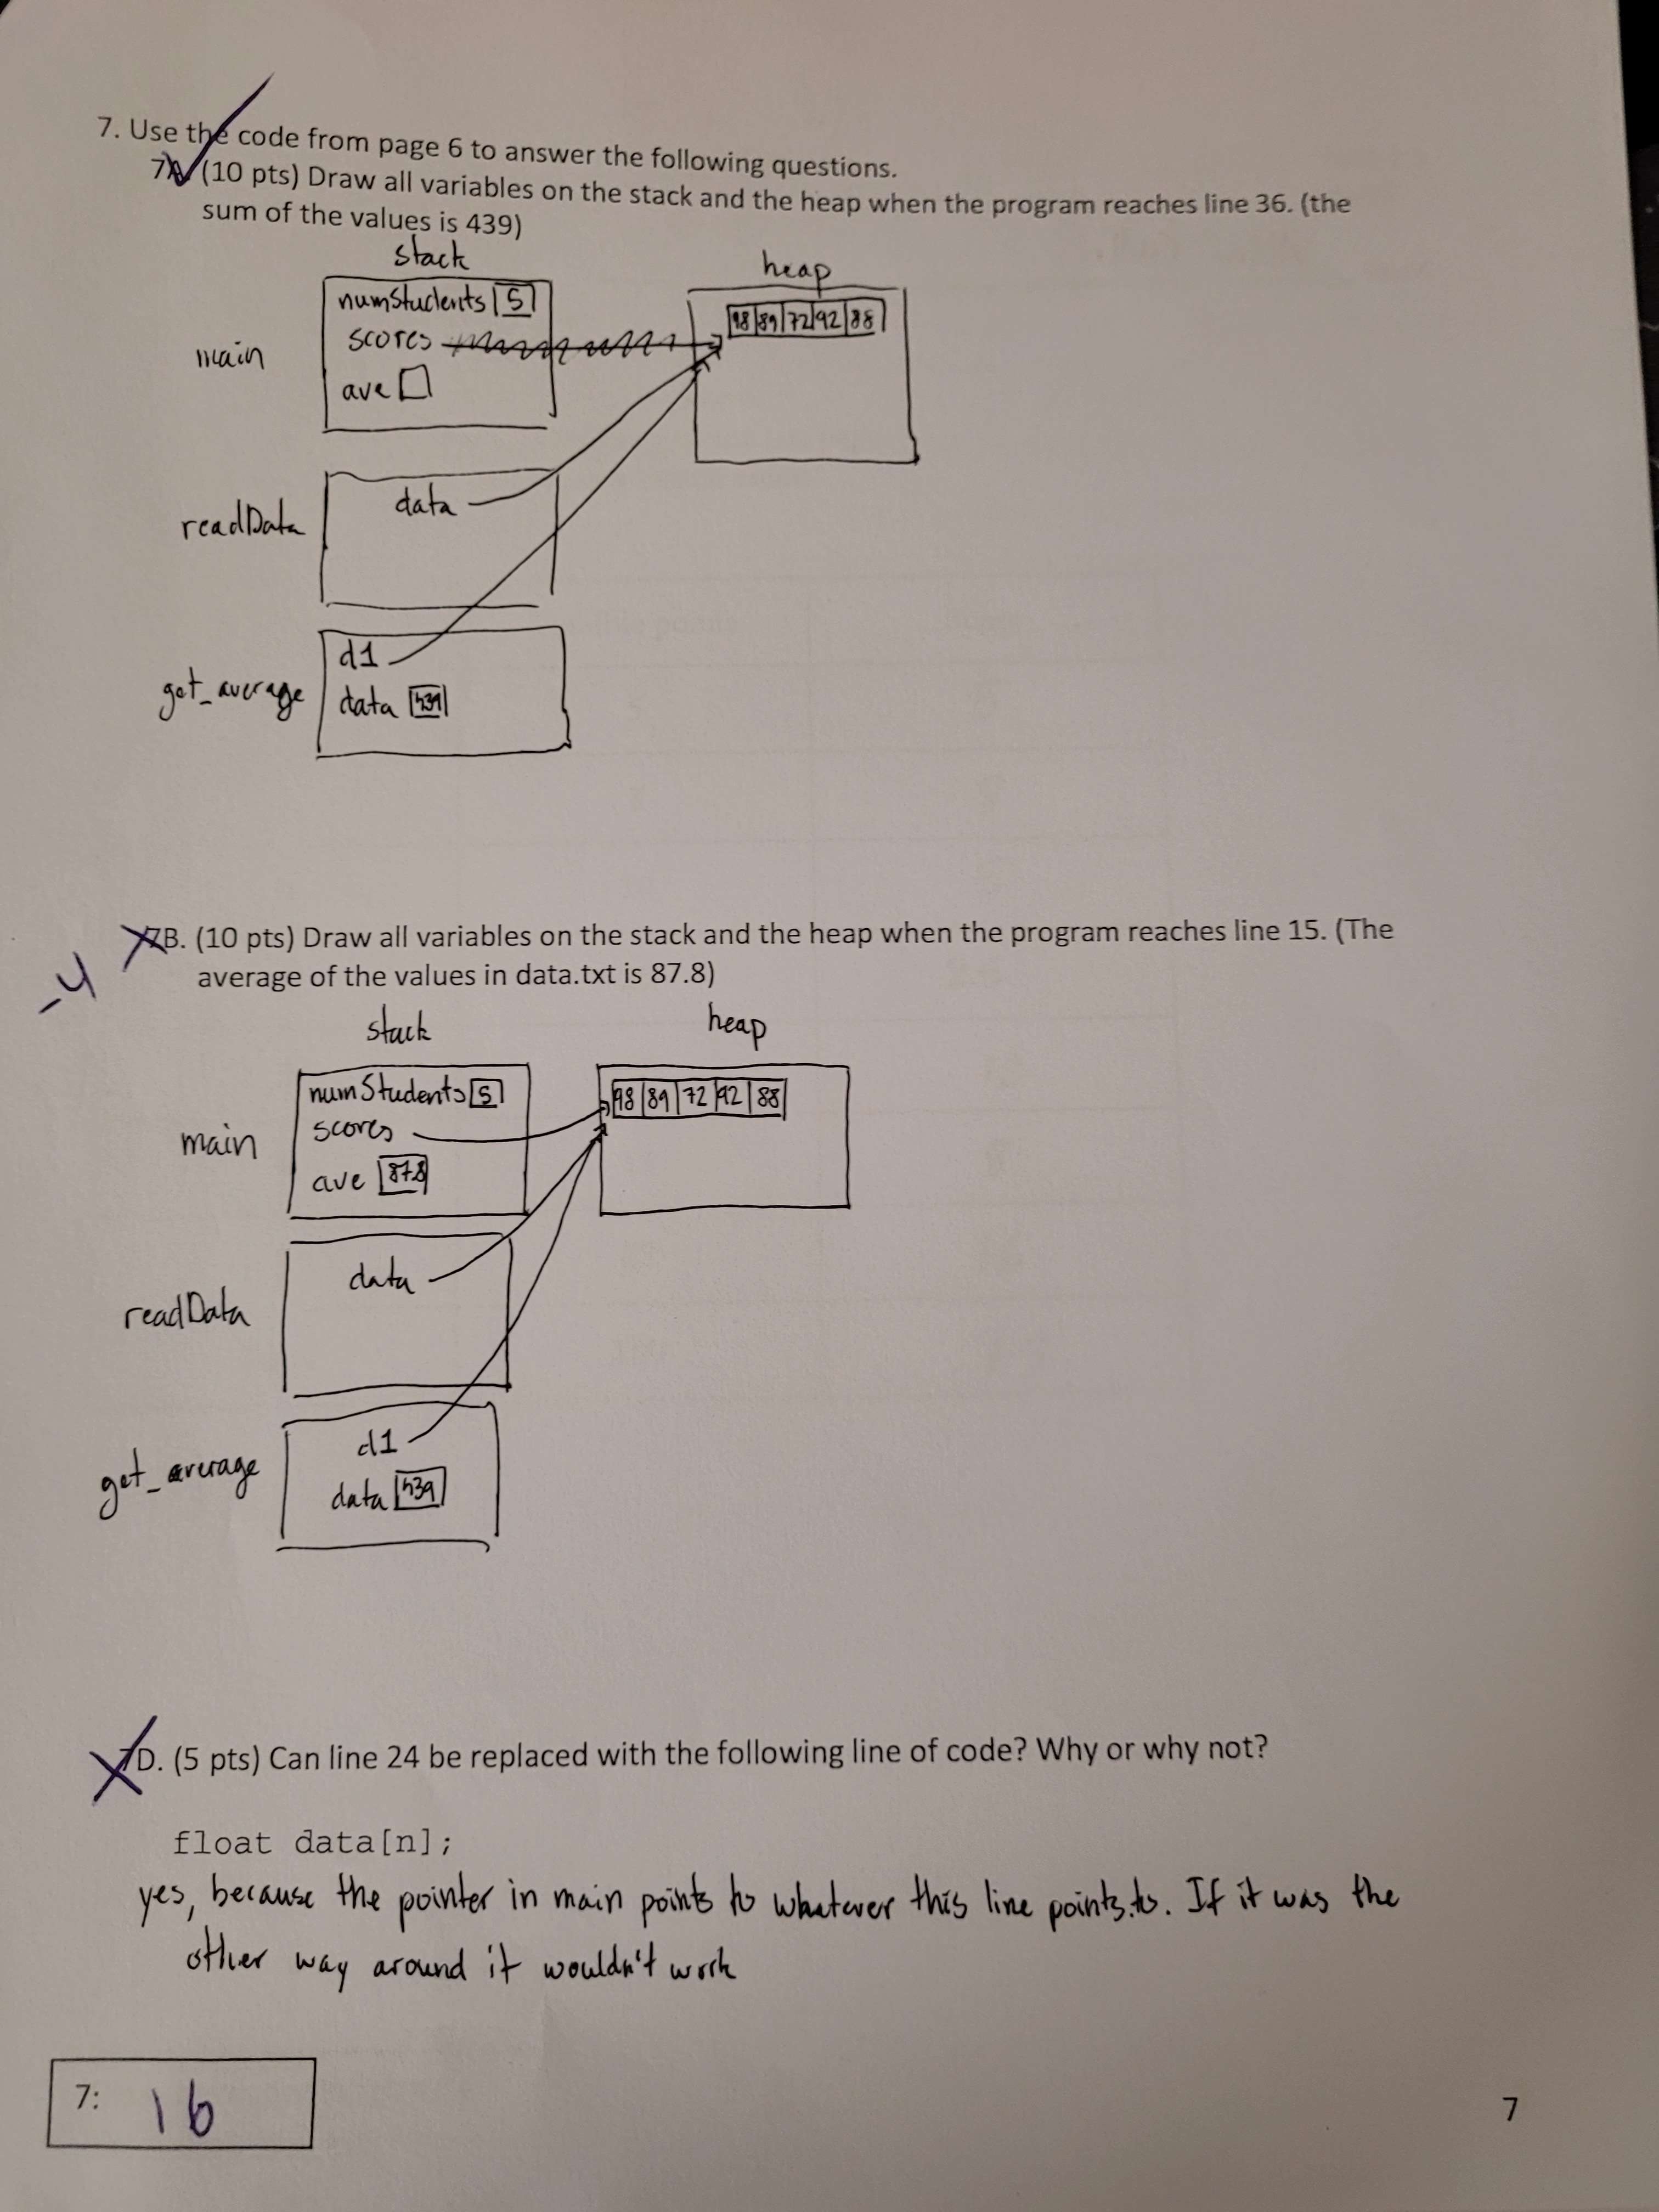 7. Use the code from page 6 to answer the following questions.
7A. (10 pts) Draw all variables on the stack and the heap when the program reaches line 36. (the
sum of the values is 439)
stack
heap
numStudents 5
98 89 72 92 88
main
scores
ave
data
readData
d1
get_average
data 439
-4
7B. (10 pts) Draw all variables on the stack and the heap when the program reaches line 15. (The
average of the values in data.txt is 87.8)
stack
heap
numStudents 5
98 89 72 92 88
scores
main
ave 87.8
data
readData
d1
get_average
data 439
7D. (5 pts) Can line 24 be replaced with the following line of code? Why or why not?
float data[n];
yes, because the pointer in main points to whatever this line points to. If it was the
other way around it wouldn't work
7: 16
7